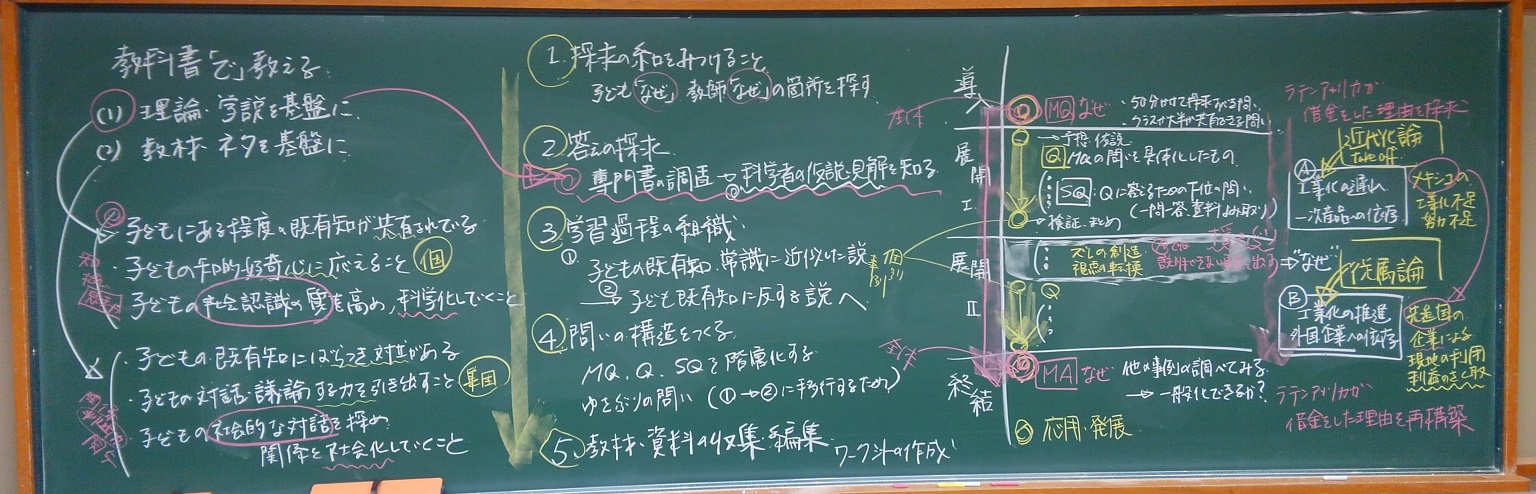 教科書「で」教える
(1) 理論・学説を基盤に
(2) 教材・ネタを基盤に
・子どもにある程度の既有知が共有されている
・子どもの知的好奇心に応えること 個
・子どもの社会認識の質を高め、科学化していくこと
・子どもの既有知にばらつき、対立がある
・子どもの対話・議論する力を引き出すこと 集団
・子どもの社会的な対話を深め
関係を社会化していくこと
1. 探求の糸口をみつけること
子ども「なぜ」 教師「なぜ」の箇所を探す
2 答えの探求
① 専門書の調査 → ② 科学者の仮説・見解を知る
3 学習過程の組織
① 子どもの既有知・常識に近似した説
→ ② 子ども既有知に反する説へ
4 問いの構造をつくる
MQ、Q、SQを階層化する
ゆさぶりの問い (①→②に移行するため)
5. 教材・資料の収集・編集 ワークシートの作成
導入
全体
MQ なぜ
・50分かけて探求できる問い
・クラスの大半が共有できる問い
展開 I
→予想・仮説
Q MQの問いを具体化したもの
SQ : Qに答えるための下位の問い
(一問一答、資料よみ取り)
→検証、まとめ
個
展開 II
ズレの創造
視点の転換
⇒ "なぜ"
Q
終結
全体
MA なぜ
他の事例の調べてみる
→一般化できるか?
応用・発展
ラテンアメリカが
借金をした理由を探求
近代化論
take off
A
工業化の遅れ
一次産品への依存
メキシコの
工業化不足
努力不足
従属論
B
工業化の推進
外国企業への依存
先進国の
企業による
現地の利用
利益のさく取
ラテンアメリカが
借金をした理由を再構築